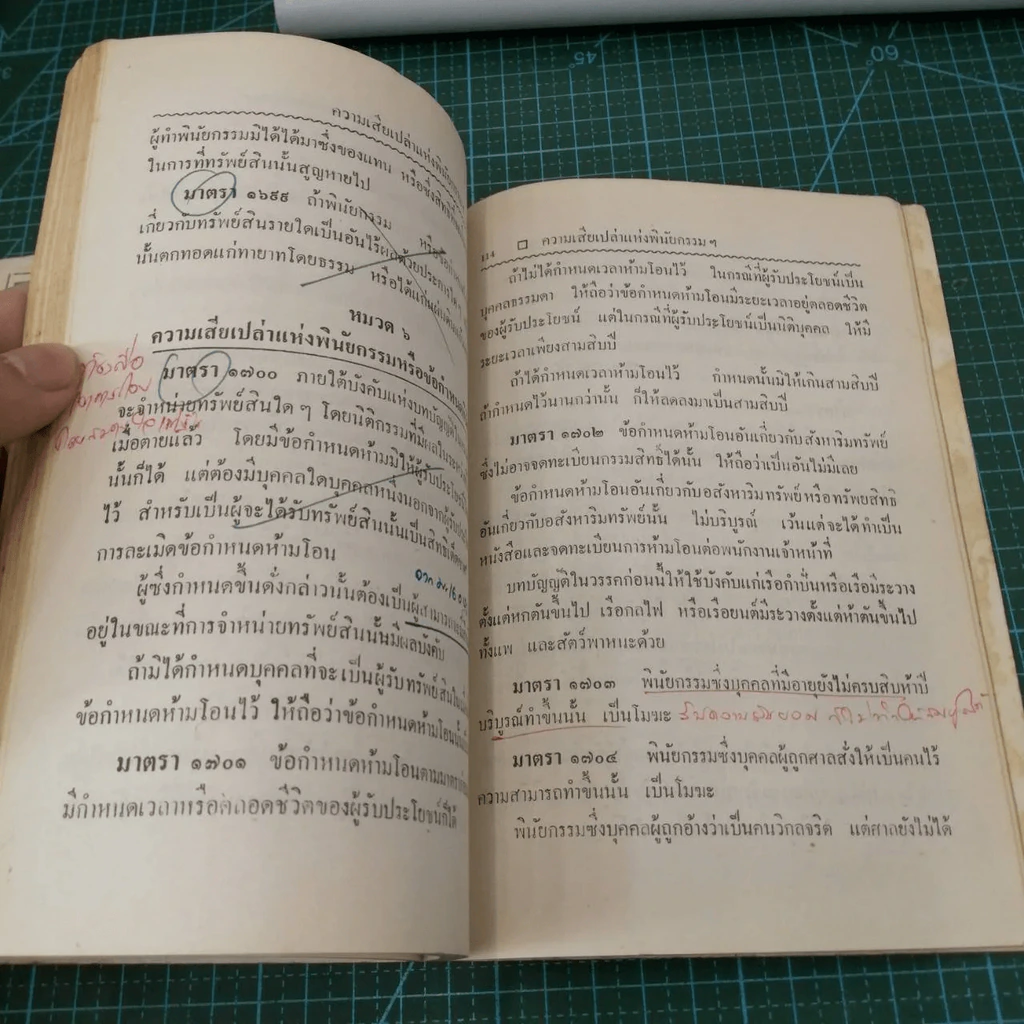 ความเสียเปล่าแห่งพินัยกรรม
ผู้ทำพินัยกรรมมิได้ได้มาซึ่งของแทน หรือซึ่งสิทธิที่
ในการที่ทรัพย์สินนั้นสูญหายไป
มาตรา ๑๖๙๙ ถ้าพินัยกรรม หรือข้อกำหนด
เกี่ยวกับทรัพย์สินรายใดเป็นอันไร้ผลด้วยประการใด ๆ
นั้นตกทอดแก่ทายาทโดยธรรม หรือได้แก่แผ่นดิน
หมวด ๖
ความเสียเปล่าแห่งพินัยกรรมหรือข้อกำหนด
มาตรา ๑๗๐๐ ภายใต้บังคับแห่งบทบัญญัติ
จะจำหน่ายทรัพย์สินใด ๆ โดยนิติกรรมที่มีผลในระหว่าง
เมื่อตายแล้ว โดยมีข้อกำหนดห้ามมิให้ผู้รับประโยชน์
นั้นก็ได้ แต่ต้องมีบุคคลใดบุคคลหนึ่งนอกจากผู้รับ
ไว้ สำหรับเป็นผู้จะได้รับทรัพย์สินนั้นเป็นสิทธิเด็ดขาด
การละเมิดข้อกำหนดห้ามโอน
ผู้ซึ่งกำหนดขึ้นดั่งกล่าวนั้นต้องเป็นผู้สามารถ
อยู่ในขณะที่การจำหน่ายทรัพย์สินนั้นมีผลบังคับ
ถ้ามิได้กำหนดบุคคลที่จะเป็นผู้รับทรัพย์สินใน
ข้อกำหนดห้ามโอนไว้ ให้ถือว่าข้อกำหนดห้ามโอนนั้น
มาตรา ๑๗๐๑ ข้อกำหนดห้ามโอนตามมาตรา
มีกำหนดเวลาหรือตลอดชีวิตของผู้รับประโยชน์ก็ได้
ความเสียเปล่าแห่งพินัยกรรม ฯ
ถ้าไม่ได้กำหนดเวลาห้ามโอนไว้ ในกรณีที่ผู้รับประโยชน์เป็น
บุคคลธรรมดา ให้ถือว่าข้อกำหนดห้ามโอนมีระยะเวลาอยู่ตลอดชีวิต
ของผู้รับประโยชน์ แต่ในกรณีที่ผู้รับประโยชน์เป็นนิติบุคคล ให้มี
ระยะเวลาเพียงสามสิบปี
ถ้าได้กำหนดเวลาห้ามโอนไว้ กำหนดนั้นมิให้เกินสามสิบปี
ถ้ากำหนดไว้นานกว่านั้น ก็ให้ลดลงมาเป็นสามสิบปี
มาตรา ๑๗๐๒ ข้อกำหนดห้ามโอนอันเกี่ยวกับสังหาริมทรัพย์
ซึ่งไม่อาจจดทะเบียนกรรมสิทธิ์ได้นั้น ให้ถือว่าเป็นอันไม่มีเลย
ข้อกำหนดห้ามโอนอันเกี่ยวกับอสังหาริมทรัพย์หรือทรัพยสิทธิ
อันเกี่ยวกับอสังหาริมทรัพย์นั้น ไม่บริบูรณ์ เว้นแต่จะได้ทำเป็น
หนังสือและจดทะเบียนการห้ามโอนต่อพนักงานเจ้าหน้าที่
บทบัญญัติในวรรคก่อนนี้ให้ใช้บังคับแก่เรือกำปั่นหรือเรือมีระวาง
ตั้งแต่หกตันขึ้นไป เรือกลไฟ หรือเรือยนต์มีระวางตั้งแต่ห้าตันขึ้นไป
ทั้งแพ และสัตว์พาหนะด้วย
มาตรา ๑๗๐๓ พินัยกรรมซึ่งบุคคลที่มีอายุยังไม่ครบสิบห้าปี
บริบูรณ์ทำขึ้นนั้น เป็นโมฆะ
มาตรา ๑๗๐๔ พินัยกรรมซึ่งบุคคลผู้ถูกศาลสั่งให้เป็นคนไร้
ความสามารถทำขึ้นนั้น เป็นโมฆะ
พินัยกรรมซึ่งบุคคลผู้ถูกอ้างว่าเป็นคนวิกลจริต แต่ศาลยังไม่ได้